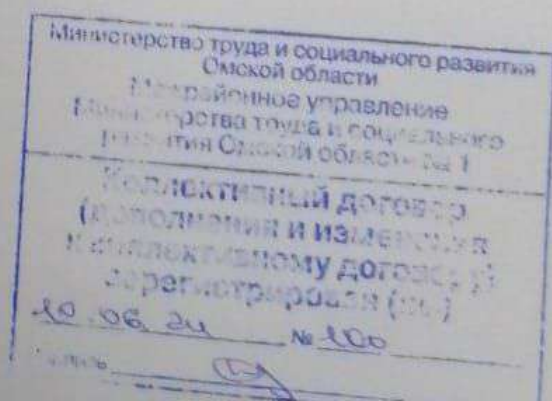 Министерство труда и социального развития
Омской области
Межрайонное управление
Министерства труда и социального
развития Омской области № 1
Коллективный договор
(дополнения и изменения
к коллективному договору)
зарегистрирован (ны)
10.06.24 № 100